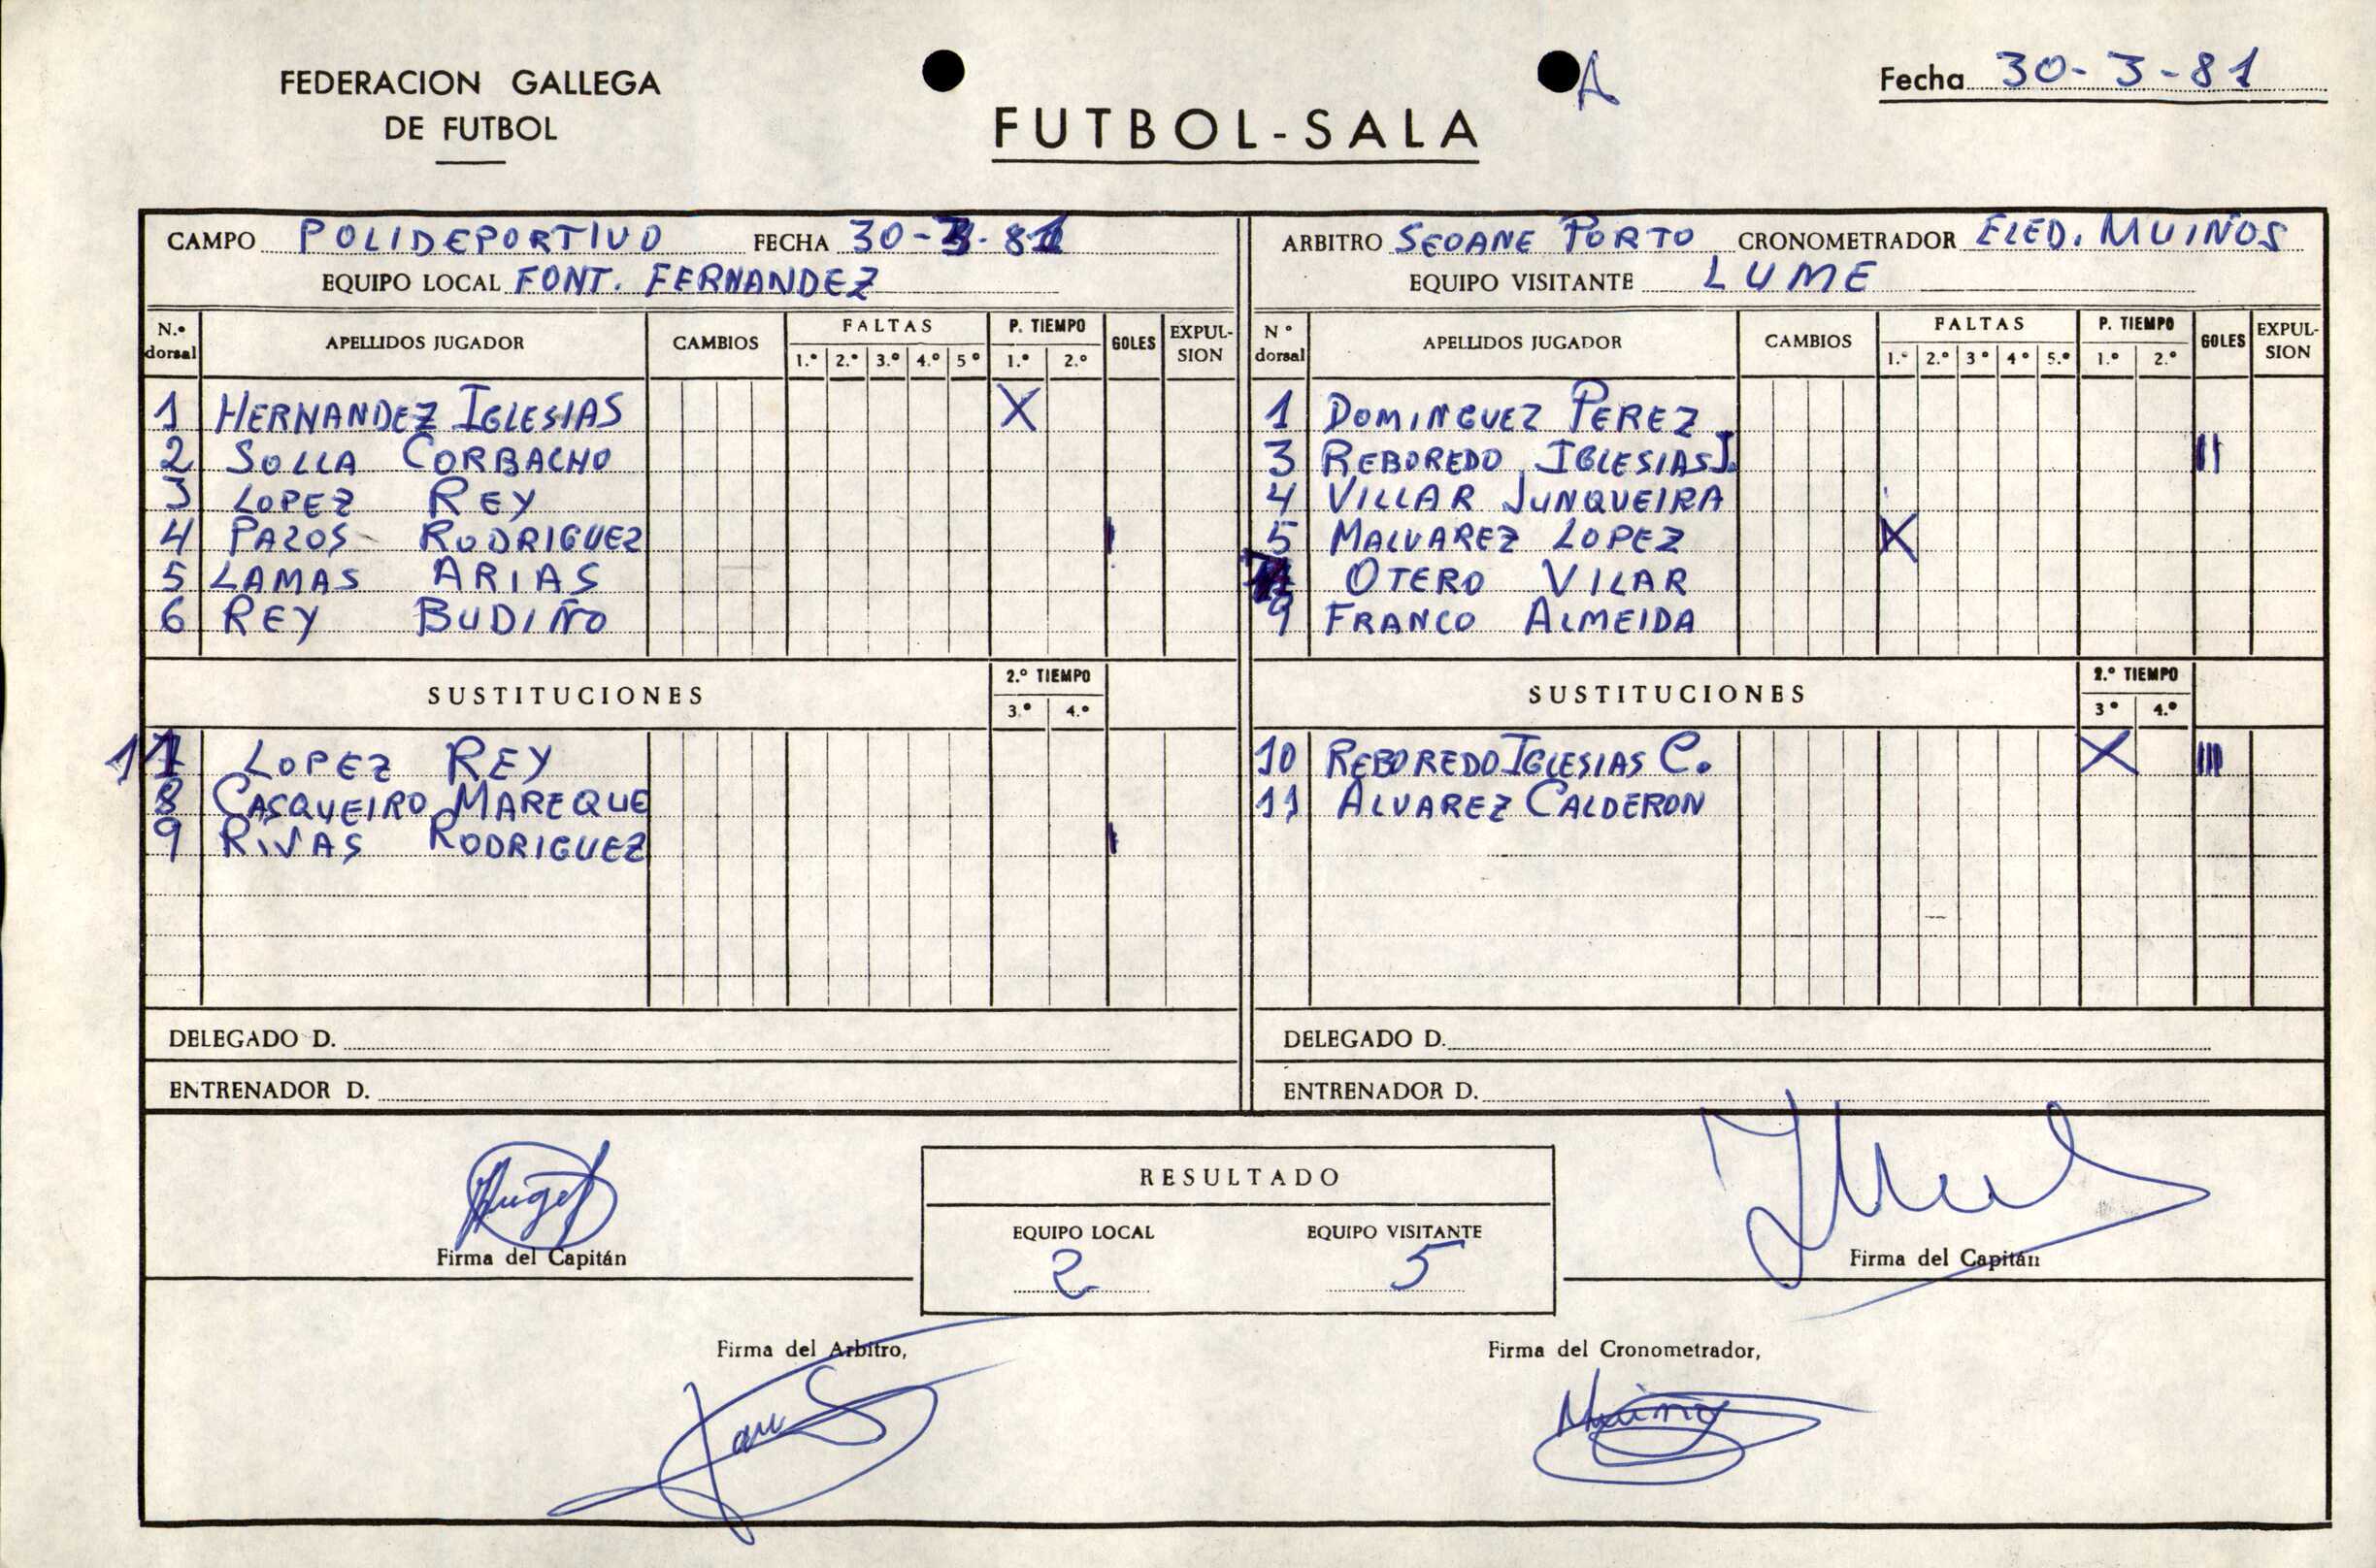 FEDERACION GALLEGA
DE FUTBOL
A
FUTBOL-SALA
Fecha 30-3-81
CAMPO POLIDEPORTIVO FECHA 30-3-81
EQUIPO LOCAL FONT. FERNANDEZ
N.º dorsal APELLIDOS JUGADOR CAMBIOS FALTAS 1.º 2.º 3.º 4.º 5º P. TIEMPO 1.º 2.º GOLES EXPUL-SION
1 HERNANDEZ IGLESIAS X
2 SOLLA CORBACHO
3 LOPEZ REY
4 PAZOS RODRIGUEZ I
5 LAMAS ARIAS
6 REY BUDIÑO
SUSTITUCIONES 2.º TIEMPO 3.º 4.º
11 LOPEZ REY
8 CASQUEIRO MAREQUE
9 RIVAS RODRIGUEZ I
DELEGADO D.
ENTRENADOR D.
ARBITRO SEOANE PORTO CRONOMETRADOR ELED. MUIÑOS
EQUIPO VISITANTE LUME
N º dorsal APELLIDOS JUGADOR CAMBIOS FALTAS 1.º 2.º 3º 4º 5.º P. TIEMPO 1.º 2.º GOLES EXPUL-SION
1 DOMINGUEZ PEREZ
3 REBOREDO IGLESIAS J. II
4 VILLAR JUNQUEIRA
5 MALVAREZ LOPEZ X
OTERO VILAR
9 FRANCO ALMEIDA
SUSTITUCIONES 2.º TIEMPO 3º 4.º
10 REBOREDO IGLESIAS C. X III
11 ALVAREZ CALDERON
DELEGADO D.
ENTRENADOR D.
Firma del Capitán
RESULTADO
EQUIPO LOCAL EQUIPO VISITANTE
2 5
Firma del Capitán
Firma del Arbitro,
Firma del Cronometrador,